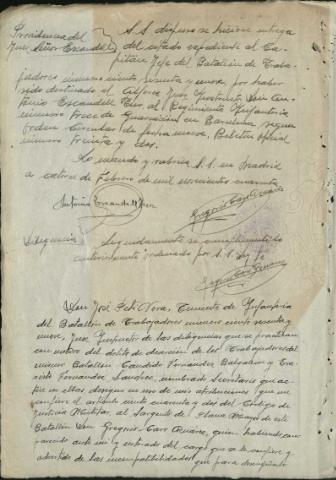 Providencia del
Juez Señor Escandell
S.S. dispuso se hiciese entrega
del citado expediente al Ca-
pitán Jefe del Batallón de Traba-
jadores número ciento sesenta y nueve, por haber
sido destinado el Alférez Juez Instructor Don An-
tonio Escandell al Regimiento Infantería
número trece de Guarnición en Barcelona según
Orden Circular de fecha nueve, Boletín Oficial
número treinta y dos.
Lo mandó y rubrica S.S. en Madrid
a catorce de Febrero de mil novecientos cuarenta
Antonio Escandell
Diligencia
Seguidamente se cumplimentó lo
anteriormente ordenado por S.S. Doy fe
Don José Vera, Teniente de Infantería
del Batallón de Trabajadores número ciento sesenta y
nueve, Juez Instructor de las diligencias que se practican
con motivo del delito de deserción de los Trabajadores del
mismo Batallón Candido Fernández y
Fernández Sánchez, nombrado Secretario que ac-
túe en ellas designo en uso de mis atribuciones que me
confiere el artículo ciento cuarenta y dos del Código de
Justicia Militar, al Sargento de Plana Mayor de este
Batallón Don Gregorio Caro quien habiendo com-
parecido ante mí y enterado del cargo que se le confiere y
advertido de las incompatibilidades que para desempeñarlo